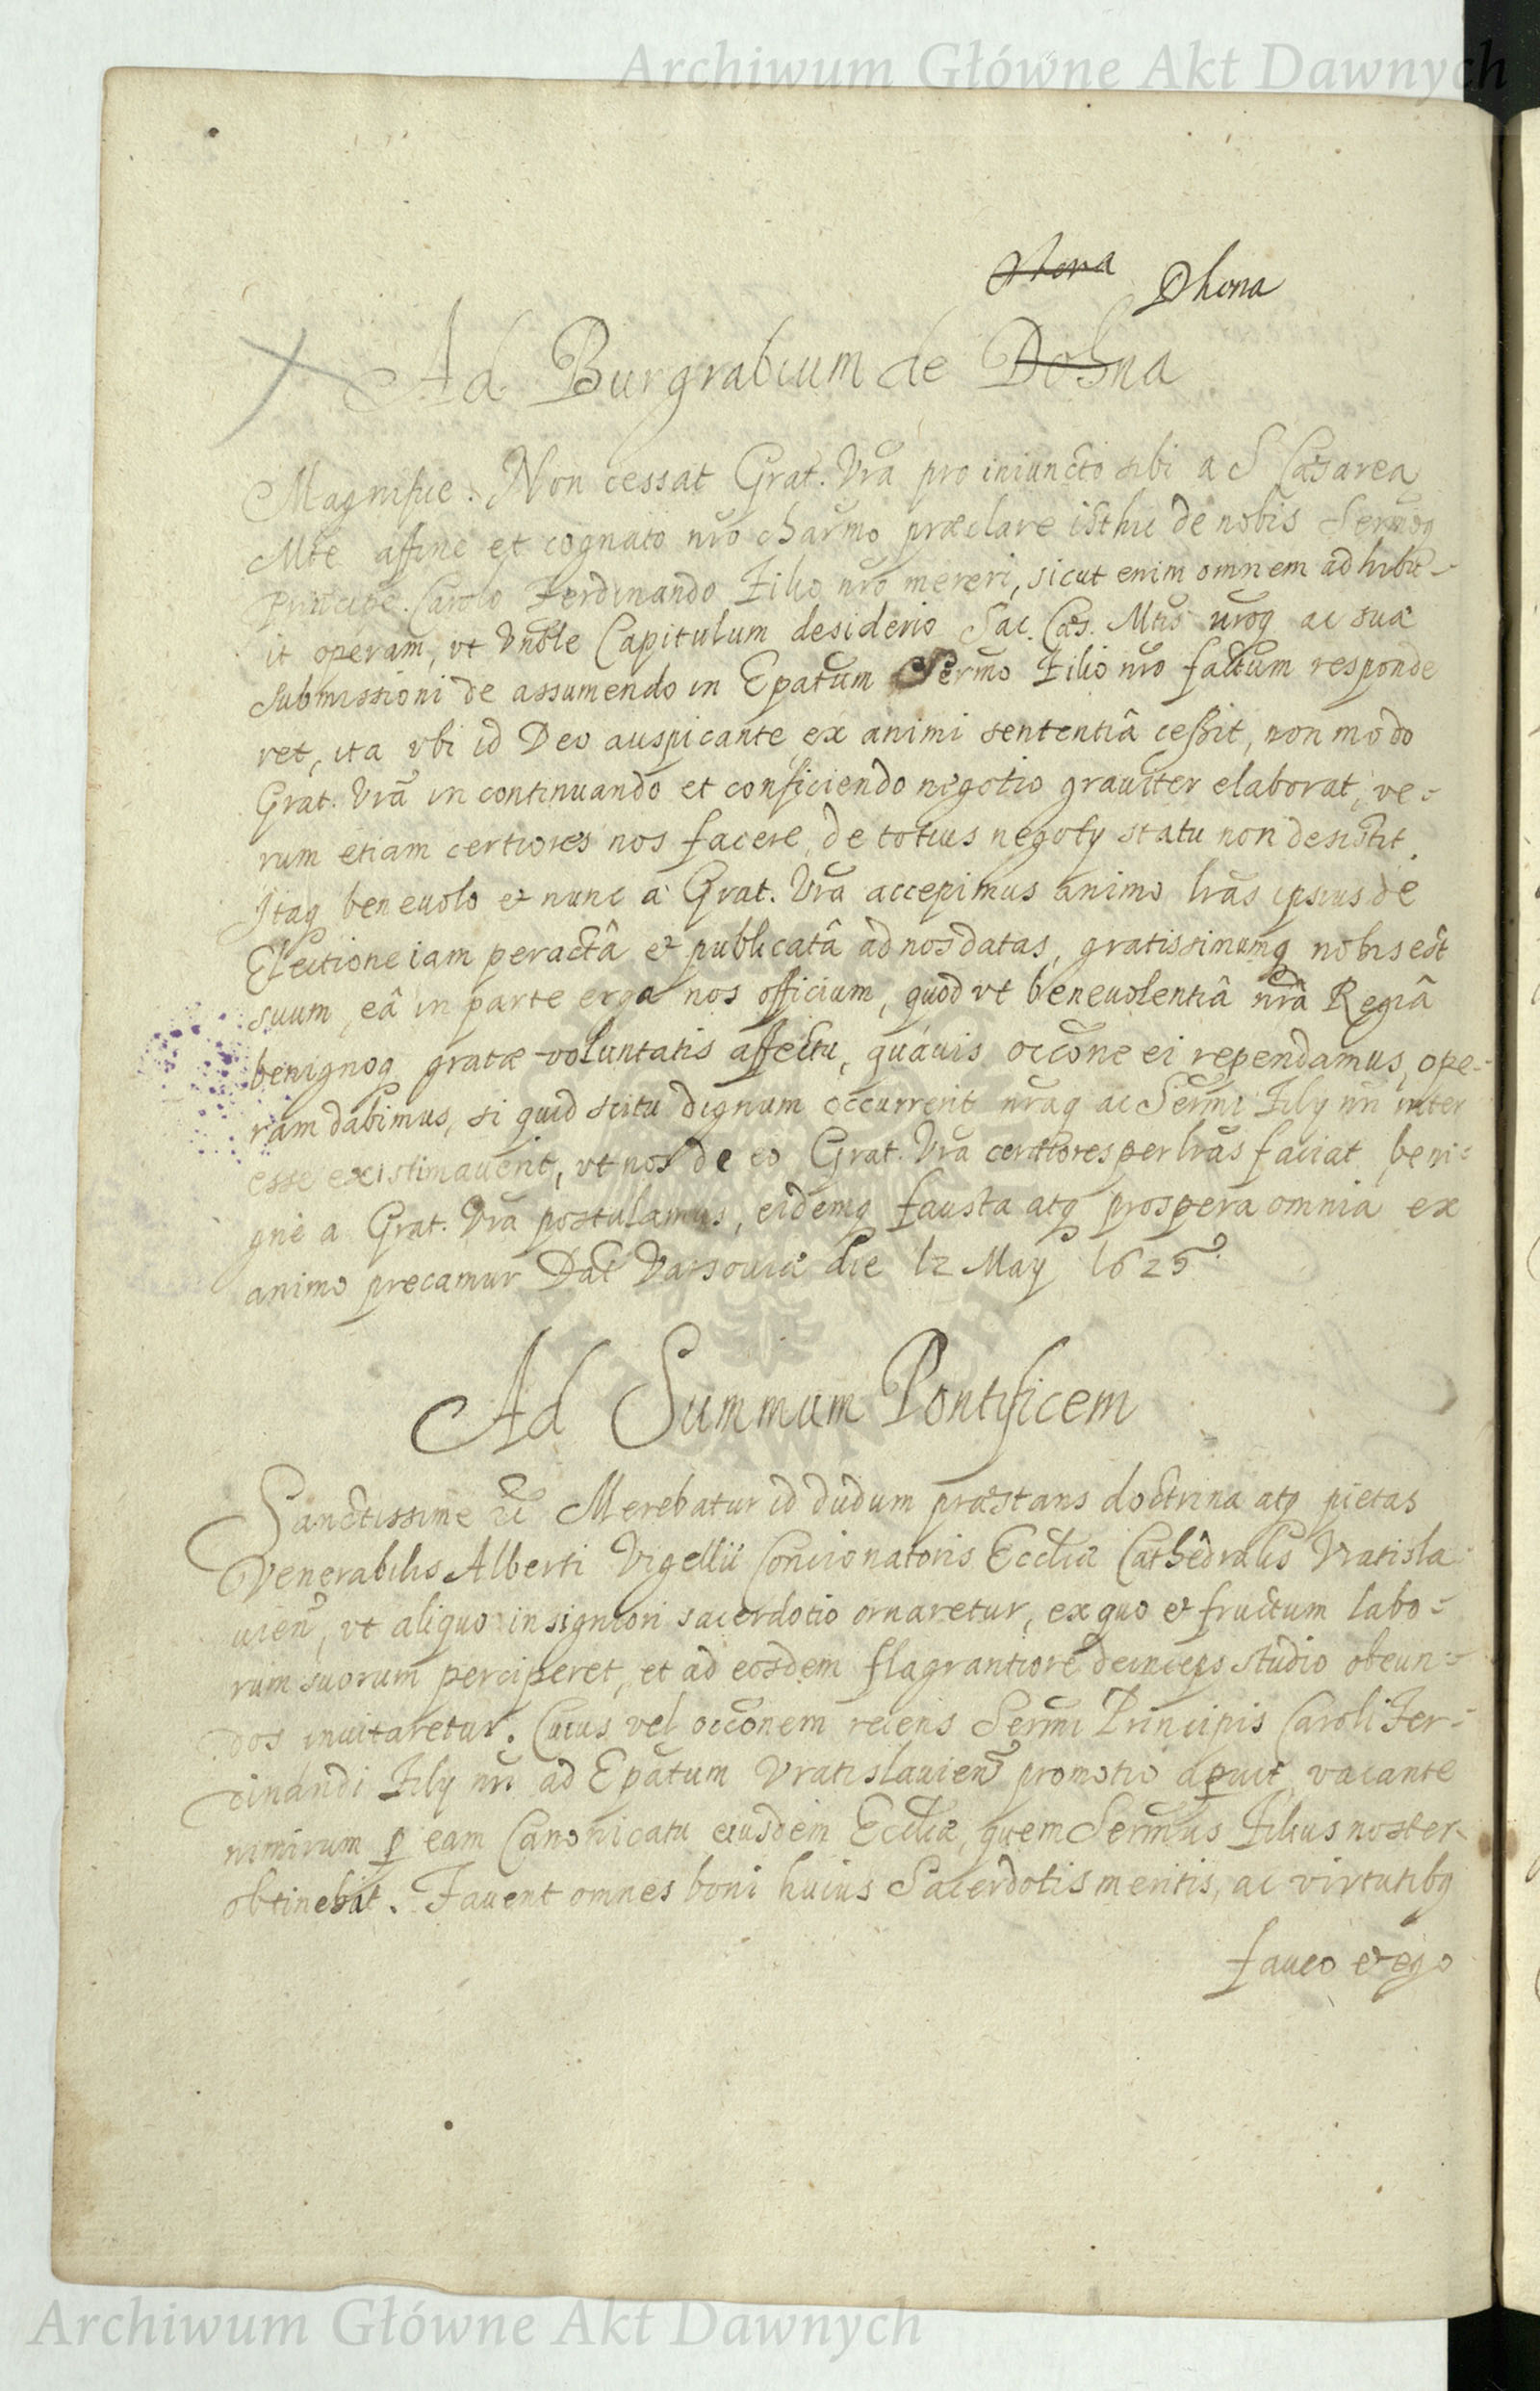 Archiwum Główne Akt Dawnych
Dhona
Ad Burgrabium de Dohna
Magnifice. Non cessat Grat. Vrã pro iniuncto sibi a S Cæsarea
Mte affine et cognato nr̃o charmo præclare isthic de nobis Sermoq
Principe Carolo Ferdinando Filio nr̃o mereri, sicut enim omnem adhibu-
it operam, vt Vnble Capitulum desiderio Sac. Cæs. Mtis nr̃oq ac suæ
submissioni de assumendo in Epatum Sermo Filio nr̃o factum responde
ret, ita vbi id Deo auspicante ex animi sententiâ cessit, non modo
Grat. Vrã in continuando et conficiendo negotio grauiter elaborat, ve-
rum etiam certiores nos facere de totius negoty statu non desistit.
Itaq beneuolo et nunc a Grat. Vrã accepimus animo lrãs ipsius de
Electione iam peractâ et publicatâ ad nos datas, gratissimumq nobis est
suum eâ in parte erga nos officium, quod vt beneuolentiâ nrâ Regiâ
benignoq gratæ voluntatis affectu, quauis occõne ei rependamus, ope-
ram dabimus, si quid scitu dignum occurrerit nrãq ac Sermi Fily nri inter
esse existimauerit, vt nos de eo Grat. Vrã certiores per lrãs faciat beni-
gnè a Grat. Vrã postulamus, eidemq fausta atq prospera omnia ex
animo precamur Dat Varsouiæ die 12 May 1625.
Ad Summum Pontificem
Sanctissime etc Merebatur id dudum præstans doctrina atq pietas
Venerabilis Alberti Vigellii Concionatoris Ecclæ Cathêdralis Vratisla
uien, vt aliquo insigniori sacerdotio ornaretur, ex quo et fructum labo-
rum suorum perciperet, et ad eosdem flagrantiorẽ deinceps studio obeun-
dos inuitaretur. Cuius vel occõnem recens Sermi Principis Caroli Fer-
dinandi Fily nri ad Epatum Vratislauien promotio aperuit vacante
nimirum p eam Canonicatu eiusdem Ecclæ, quem Sermus Filius noster
obtinebat. Fauent omnes boni huius Sacerdotis meritis, ac virtutibq
faueo et ego
Archiwum Główne Akt Dawnych